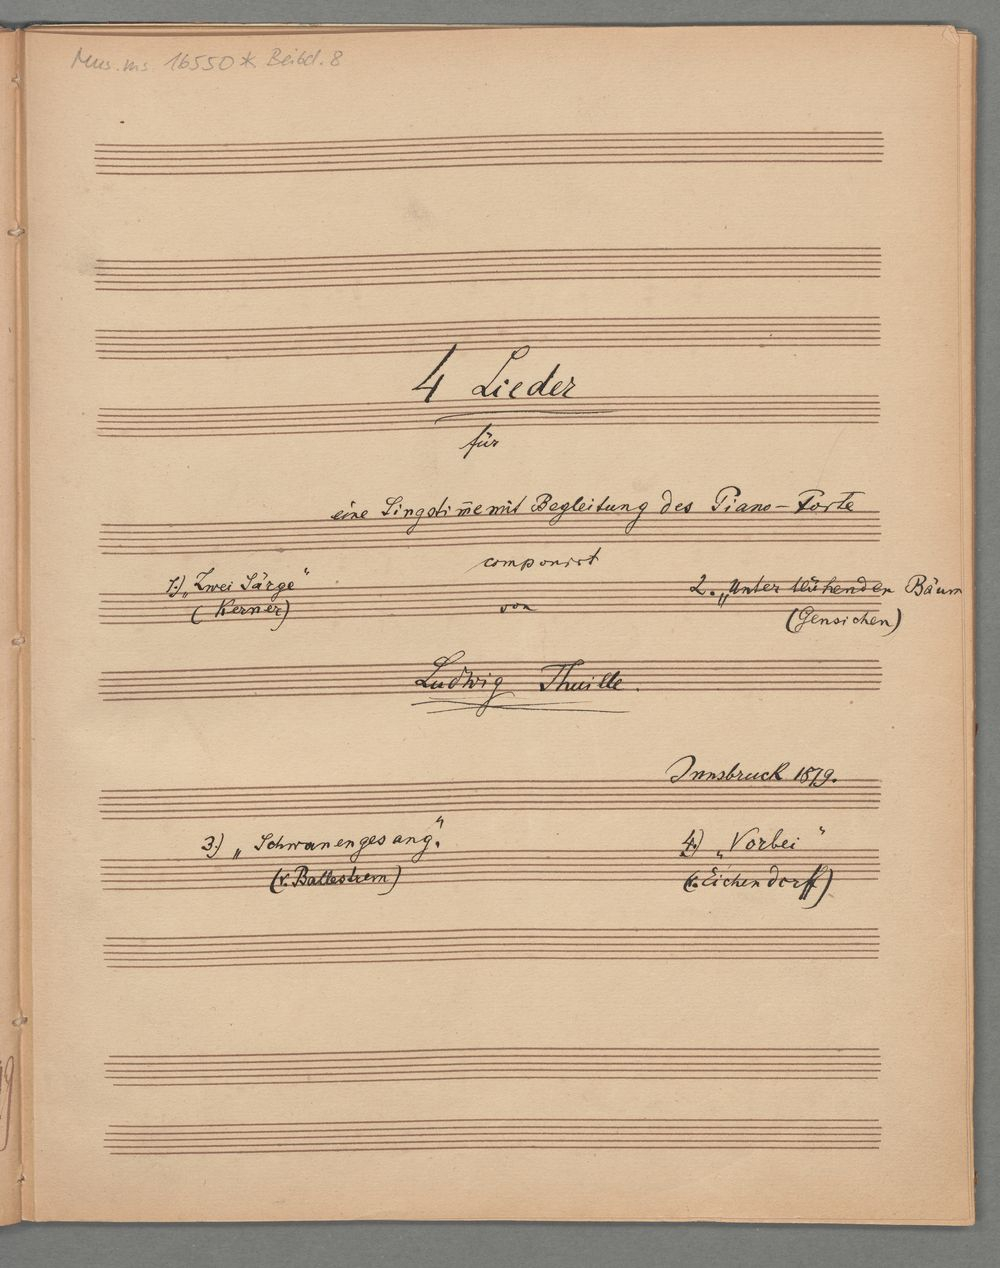 Mus. ms. 16550* Beibd. 8
4 Lieder
für
eine Singstim̅e mit Begleitung des Piano-Forte
componirt
1.) „Zwei Särge“
(Kerner)
von
2. „Unter blühenden Bäum
(Gensichen)
Ludwig Thuille.
Innsbruck 1879.
3.) „Schwanengesang“.
(v. Ballestrem)
4.) „Vorbei“
(v. Eichendorff)